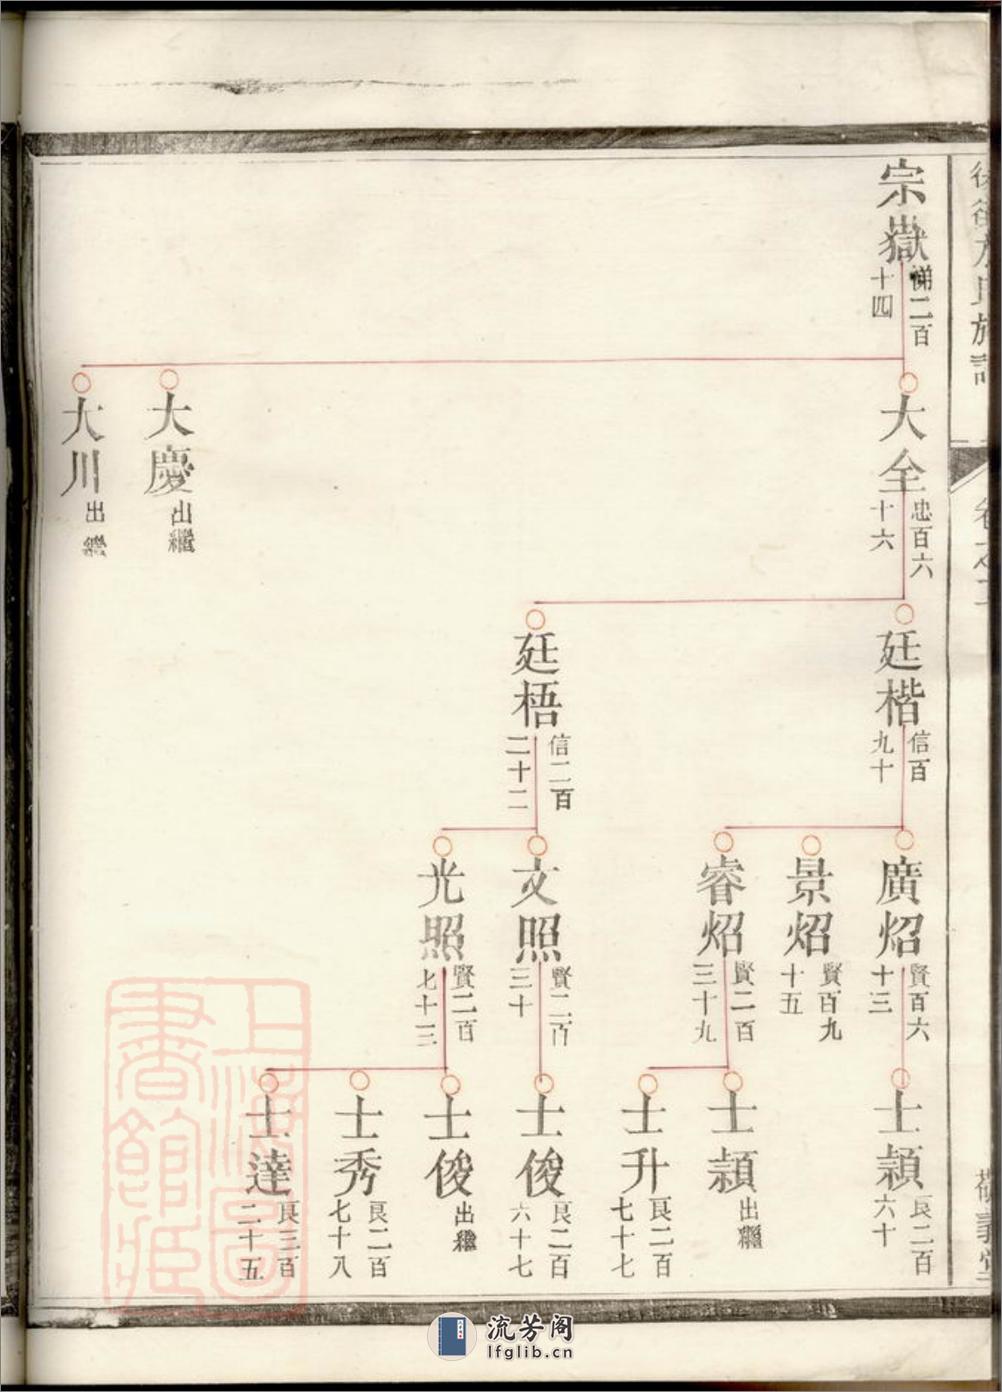 宗嶽
悌二百
十四
大全
忠百六
十六
大慶
出繼
大川
出繼
廷楷
信百
九十
廷梧
信二百
二十二
廣炤
賢百六
十三
景炤
賢百九
十五
睿炤
賢二百
三十九
文照
賢二百
三十
光照
賢二百
七十三
士穎
良二百
六十
士穎
出繼
士升
良二百
七十七
士俊
良二百
六十七
士俊
出繼
士秀
良二百
七十八
士達
良三百
二十五
上海圖
書館藏
流芳阁
lfglib.cn